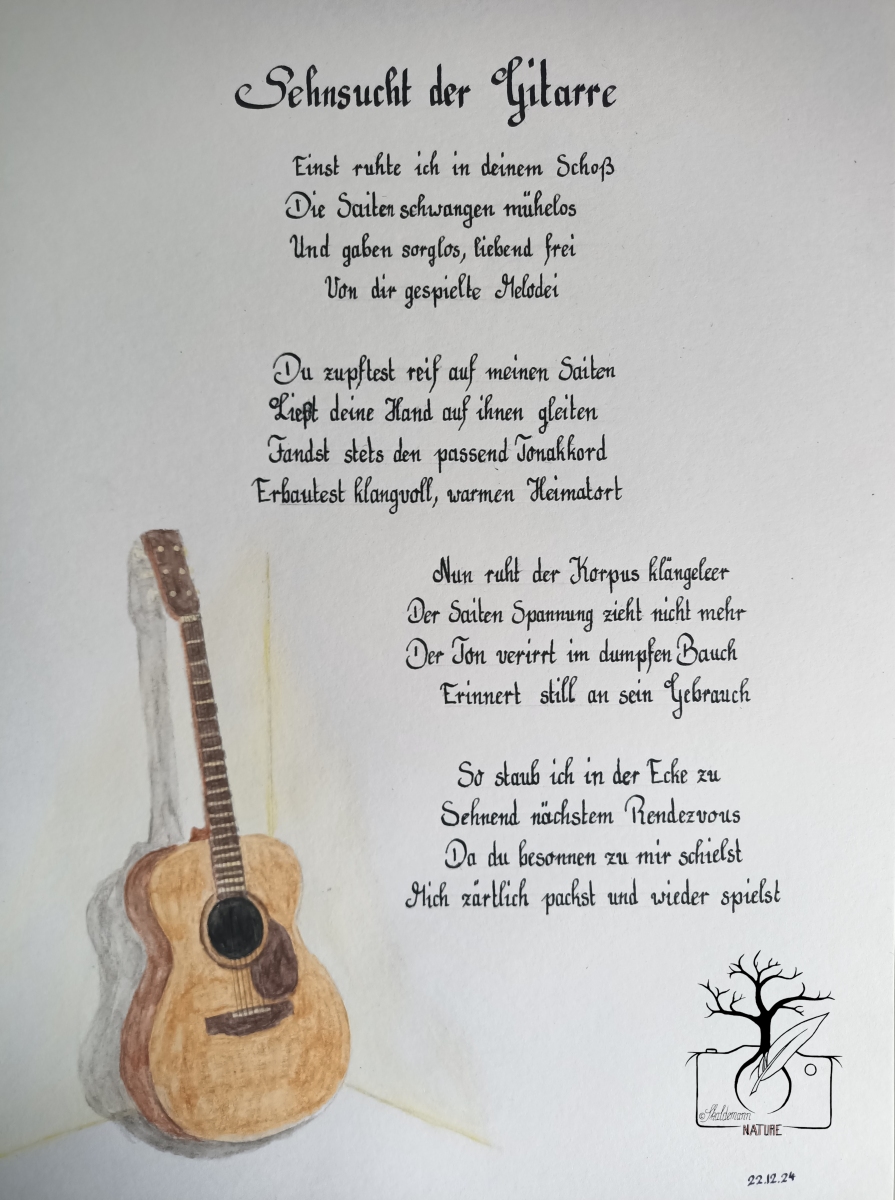 Sehnsucht der Gitarre
Einst ruhte ich in deinem Schoß
Die Saiten schwangen mühelos
Und gaben sorglos, liebend frei
Von dir gespielte Melodei
Du zupftest reif auf meinen Saiten
Ließt deine Hand auf ihnen gleiten
Fandst stets den passend Tonakkord
Erbautest klangvoll, warmen Heimatort
Nun ruht der Korpus klängeleer
Der Saiten Spannung zieht nicht mehr
Der Ton verirrt im dumpfen Bauch
Erinnert still an sein Gebrauch
So staub ich in der Ecke zu
Sehnend nächstem Rendezvous
Da du besonnen zu mir schielst
Mich zärtlich packst und wieder spielst
©Skaldemann
NATURE
22.12.24